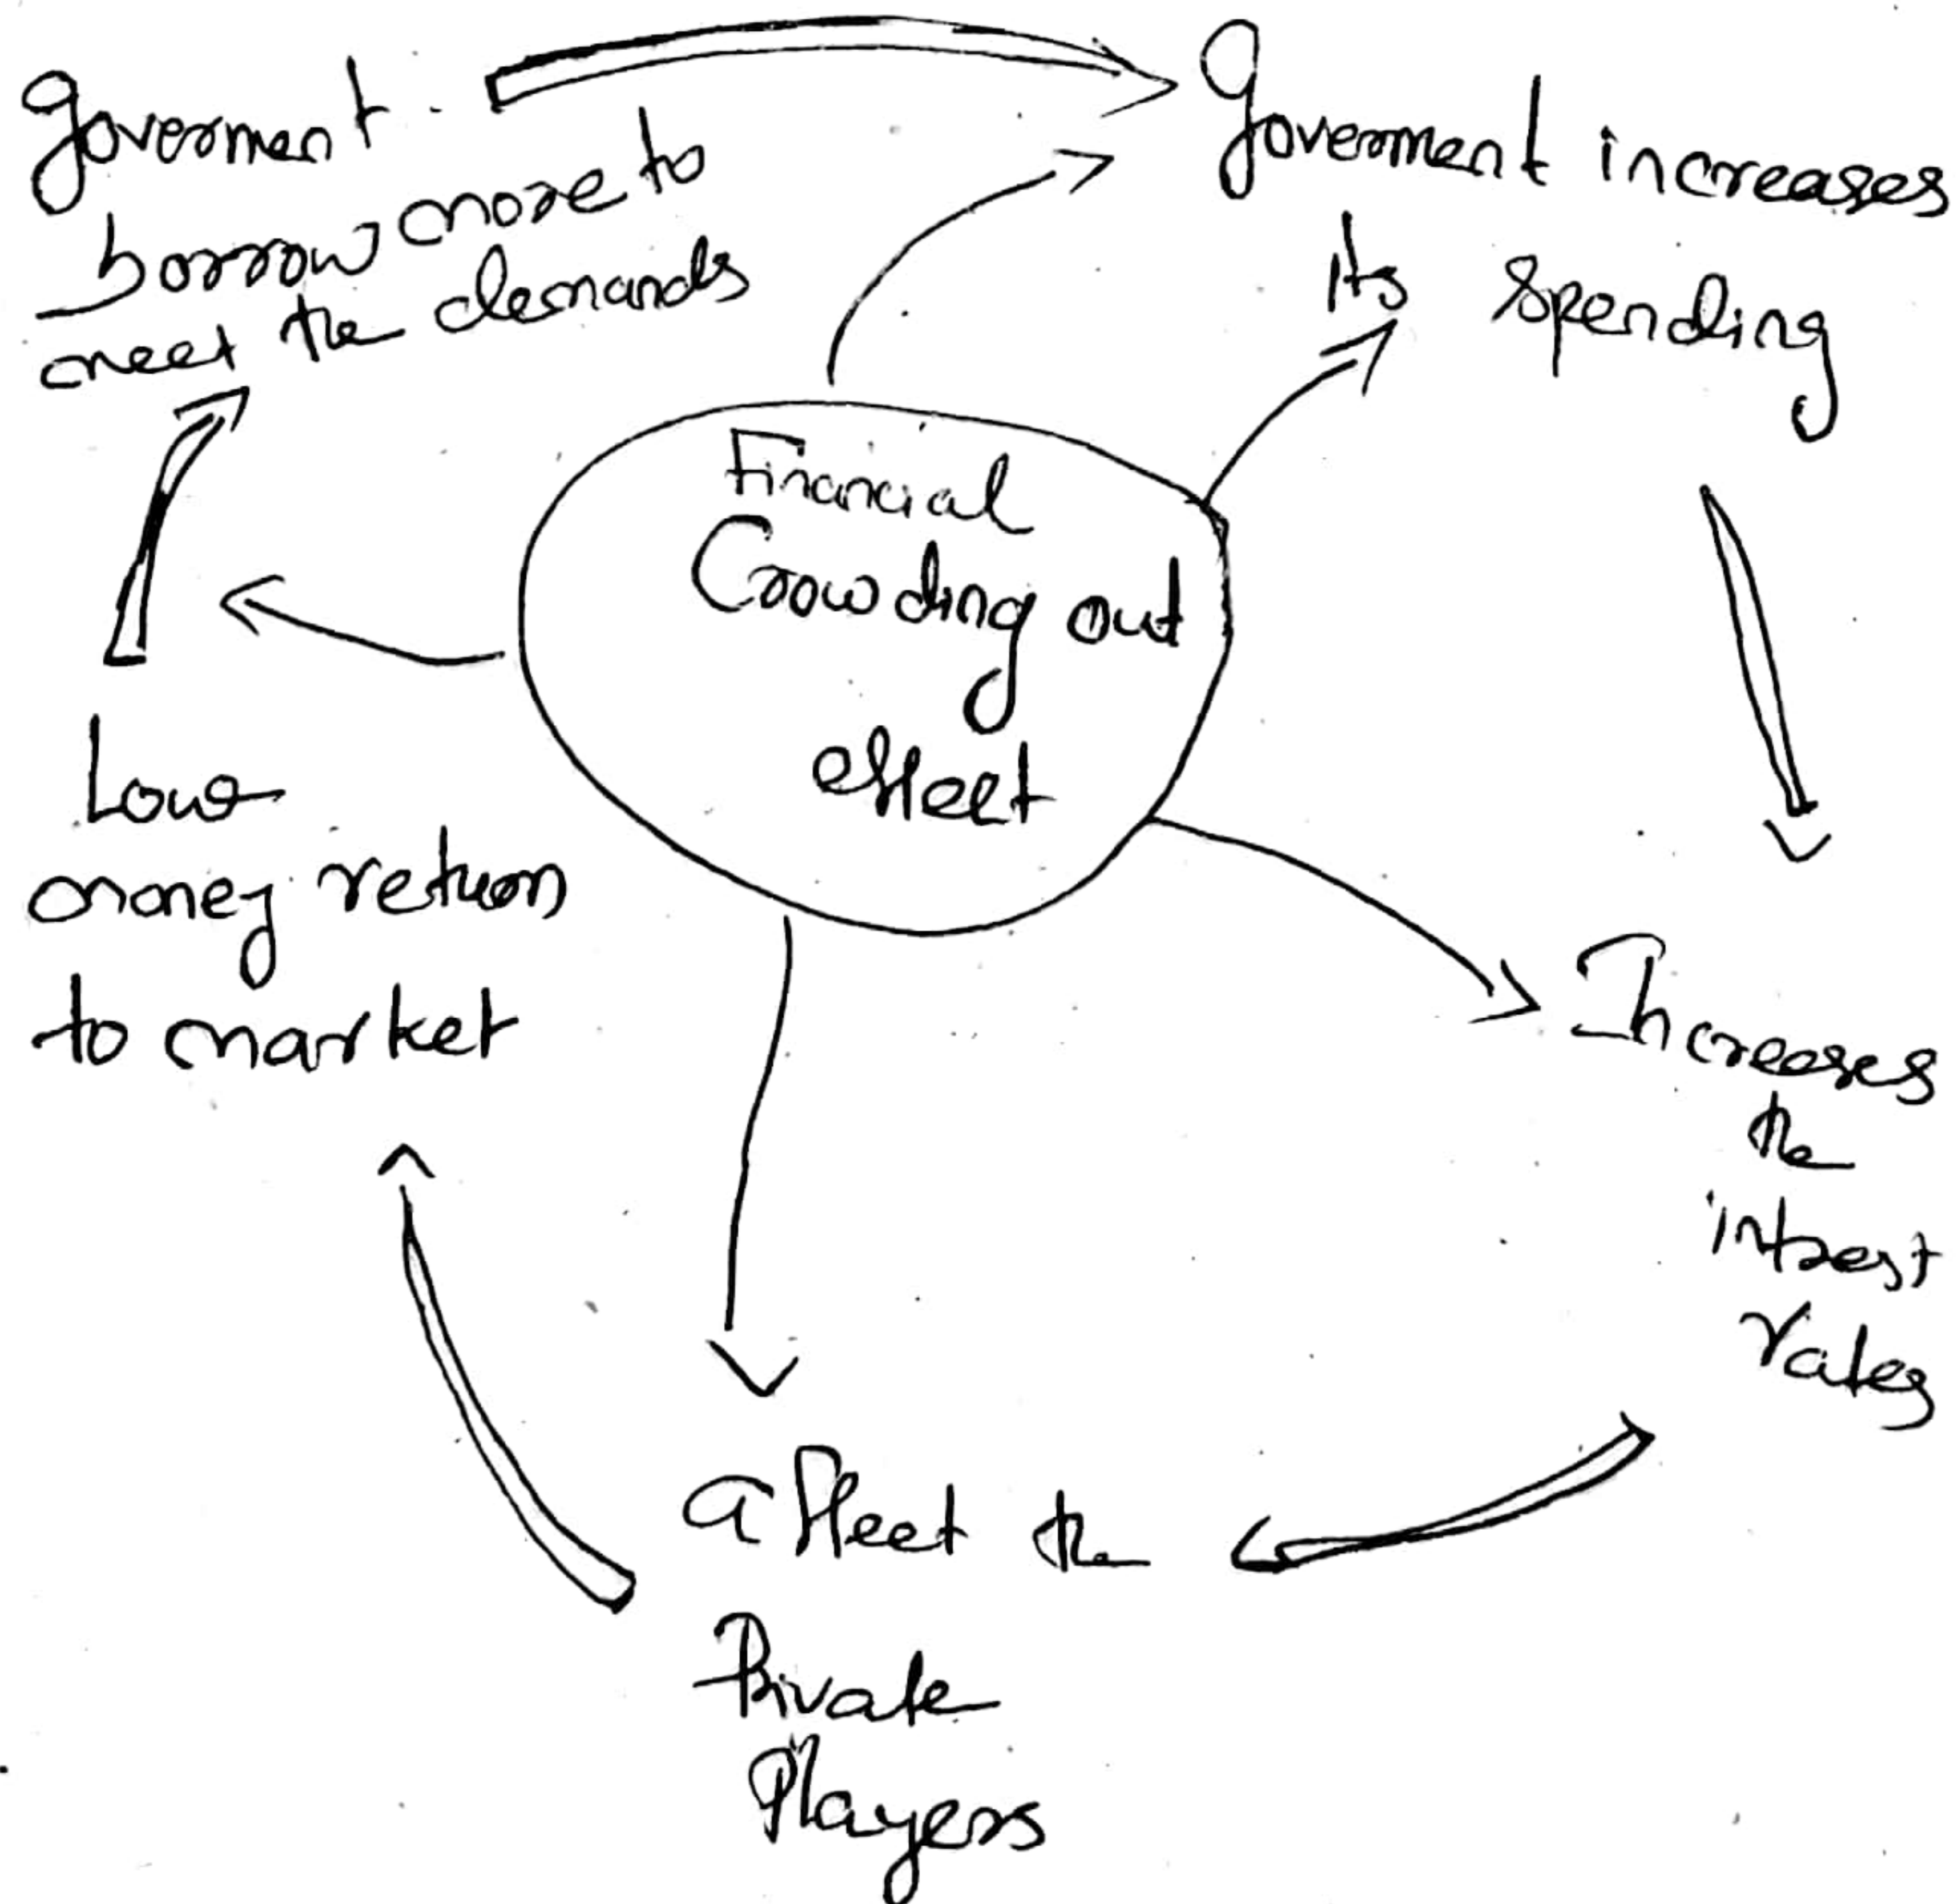 Goverment
borrow more to
meet the demands
Goverment increases
its spending
Financial
Crowding out
effect
Low
money return
to market
Increases
the
intrest
rates
affect the
Private
Players